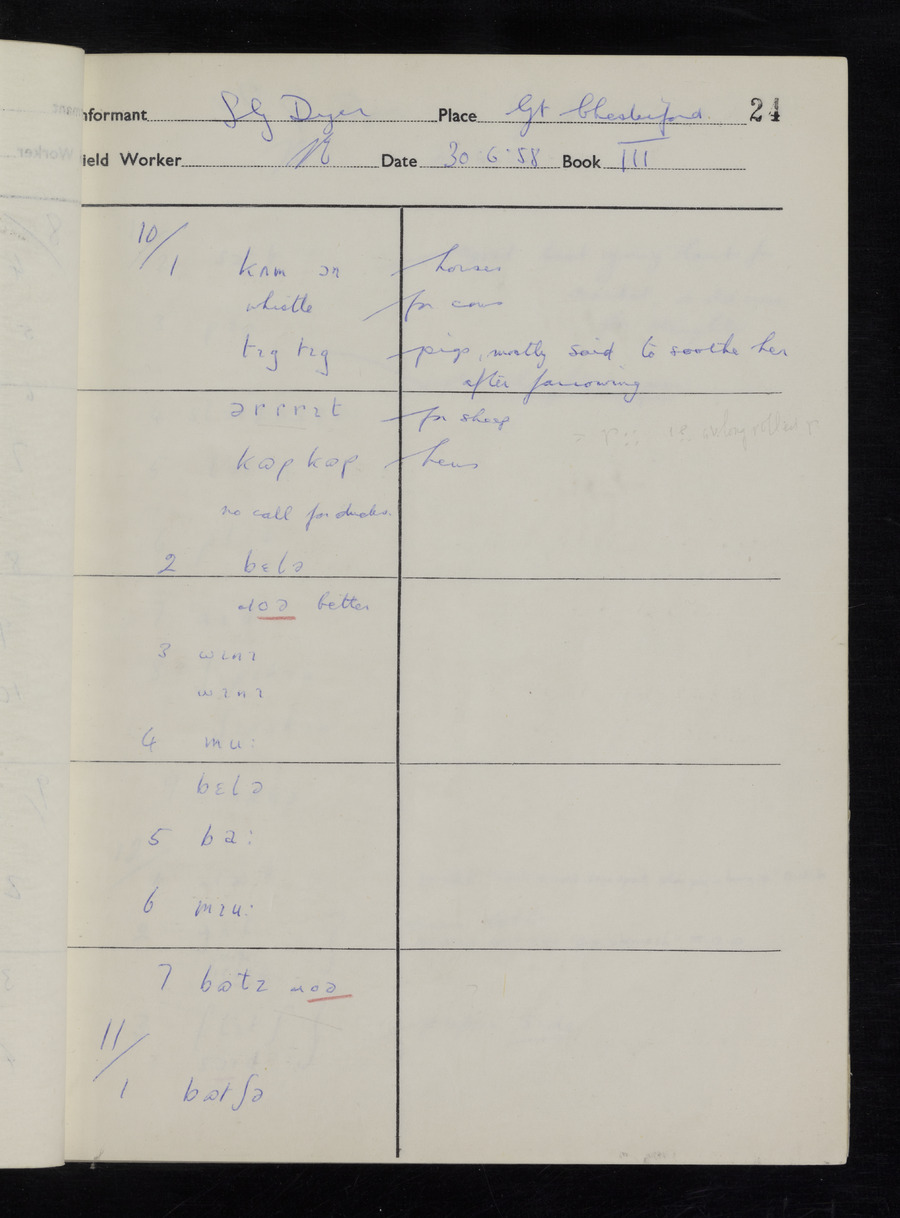 Informant S G Dyer Place Gt Chesterford 24
Field Worker Date 30·6·58 Book III
10/
1 kʌm ɒn horses
whistle for cows
tɪg tɪg pigs, mostly said to soothe her
after farrowing
ərrrɪt for sheep
kʊp kʊp hens
no call for ducks.
2 bɛlə
roə better
3 wɪnɪ
wɪnɪ
4 mu:
bɛlə
5 ba:
6 mɪu:
7 bʊtz roə
11/
1 bʊtʃə